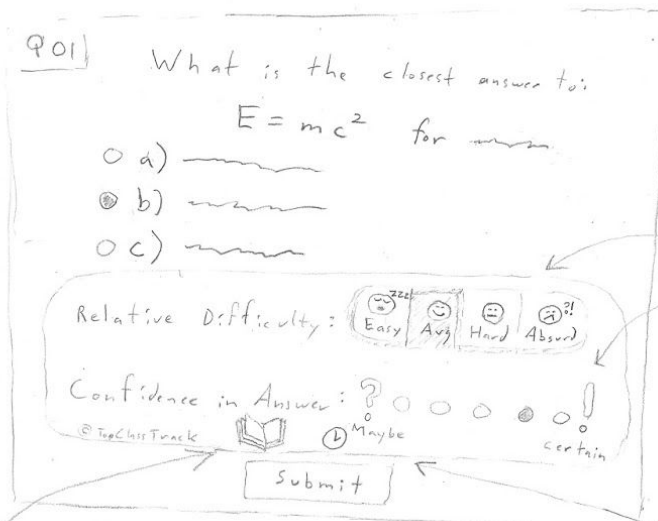 Q01
What is the closest answer to:
E = mc² for
a)
b)
c)
Relative Difficulty: Easy zzz Avg Hard Absurd ?!
Confidence in Answer: ? Maybe ! certain
© TopClassTrack
Submit